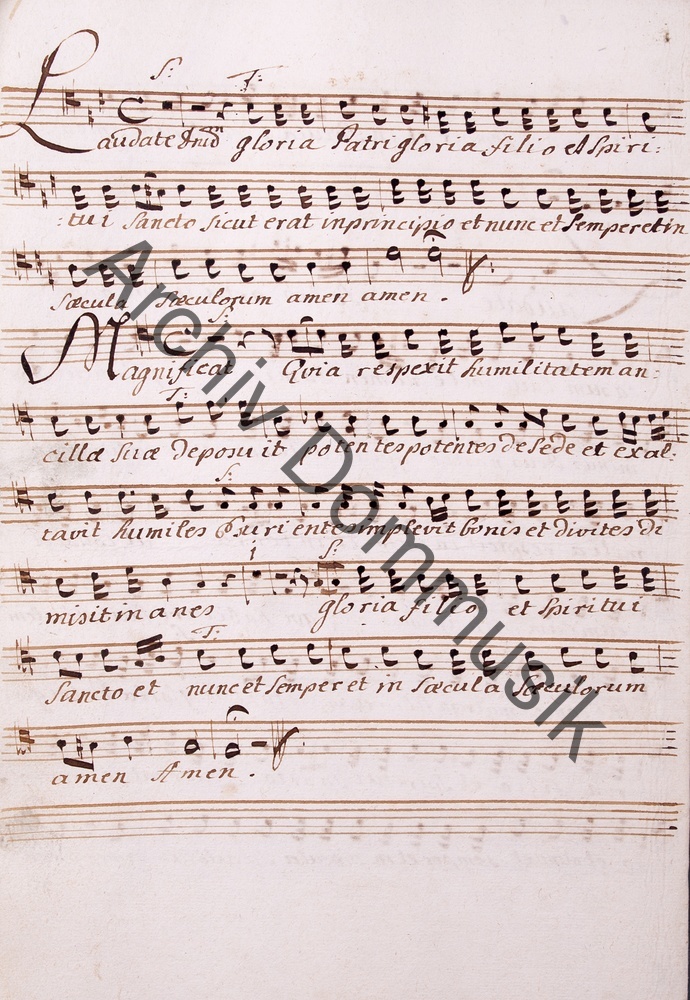 S: T:
Laudate Dnūm gloria Patri gloria filio et Spiri:
:tui Sancto sicut erat in principio et nunc et Semper et in
Sæcula Sæculorum amen amen.
S:
Magnificat Quia respexit humilitatem an:
T:
cillæ suæ deposuit potentes potentes de Sede et exal:
S:
tavit humiles Esurientes implevit bonis et divites di
1 S:
misit inanes gloria filio et Spiritui
T:
Sancto et nunc et Semper et in Sæcula Sæculorum
amen Amen.
Archiv Dommusik